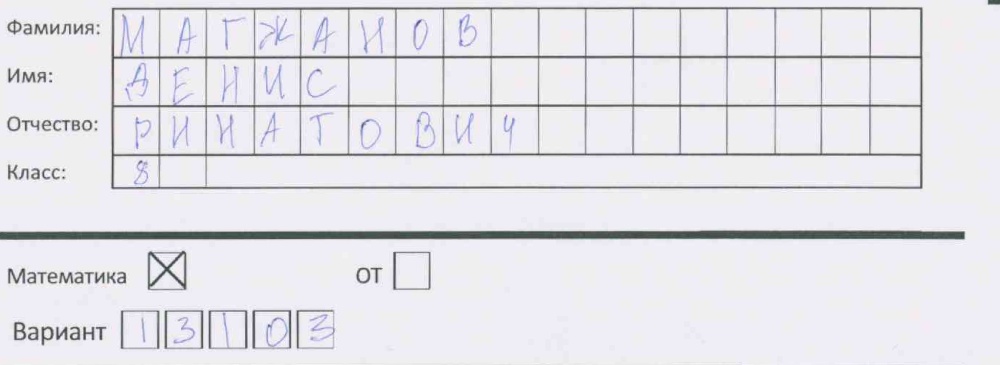 Фамилия: МАГЖАНОВ
Имя: ДЕНИС
Отчество: РИНАТОВИЧ
Класс: 8
Математика ОТ
Вариант 13103